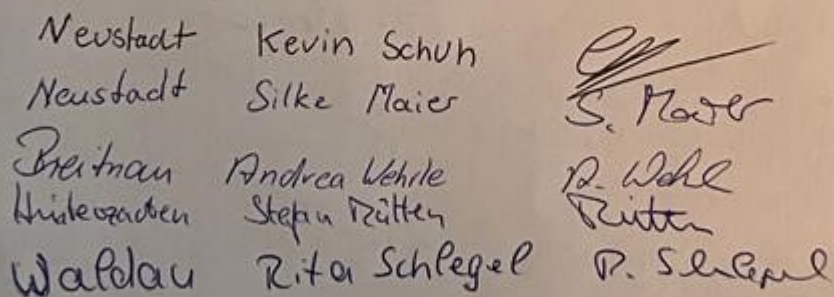 Neustadt Kevin Schuh
Neustadt Silke Maier S. Maier
Breitnau Andrea Wehrle A. Wehrle
Hinterzarten Stefan Rütten Rütten
Waldau Rita Schlegel R. Schlegel